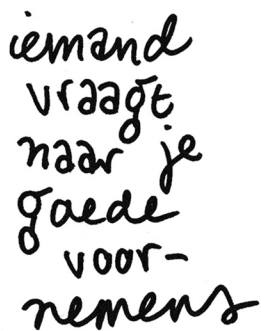 iemand
vraagt
naar je
goede
voor-
nemens